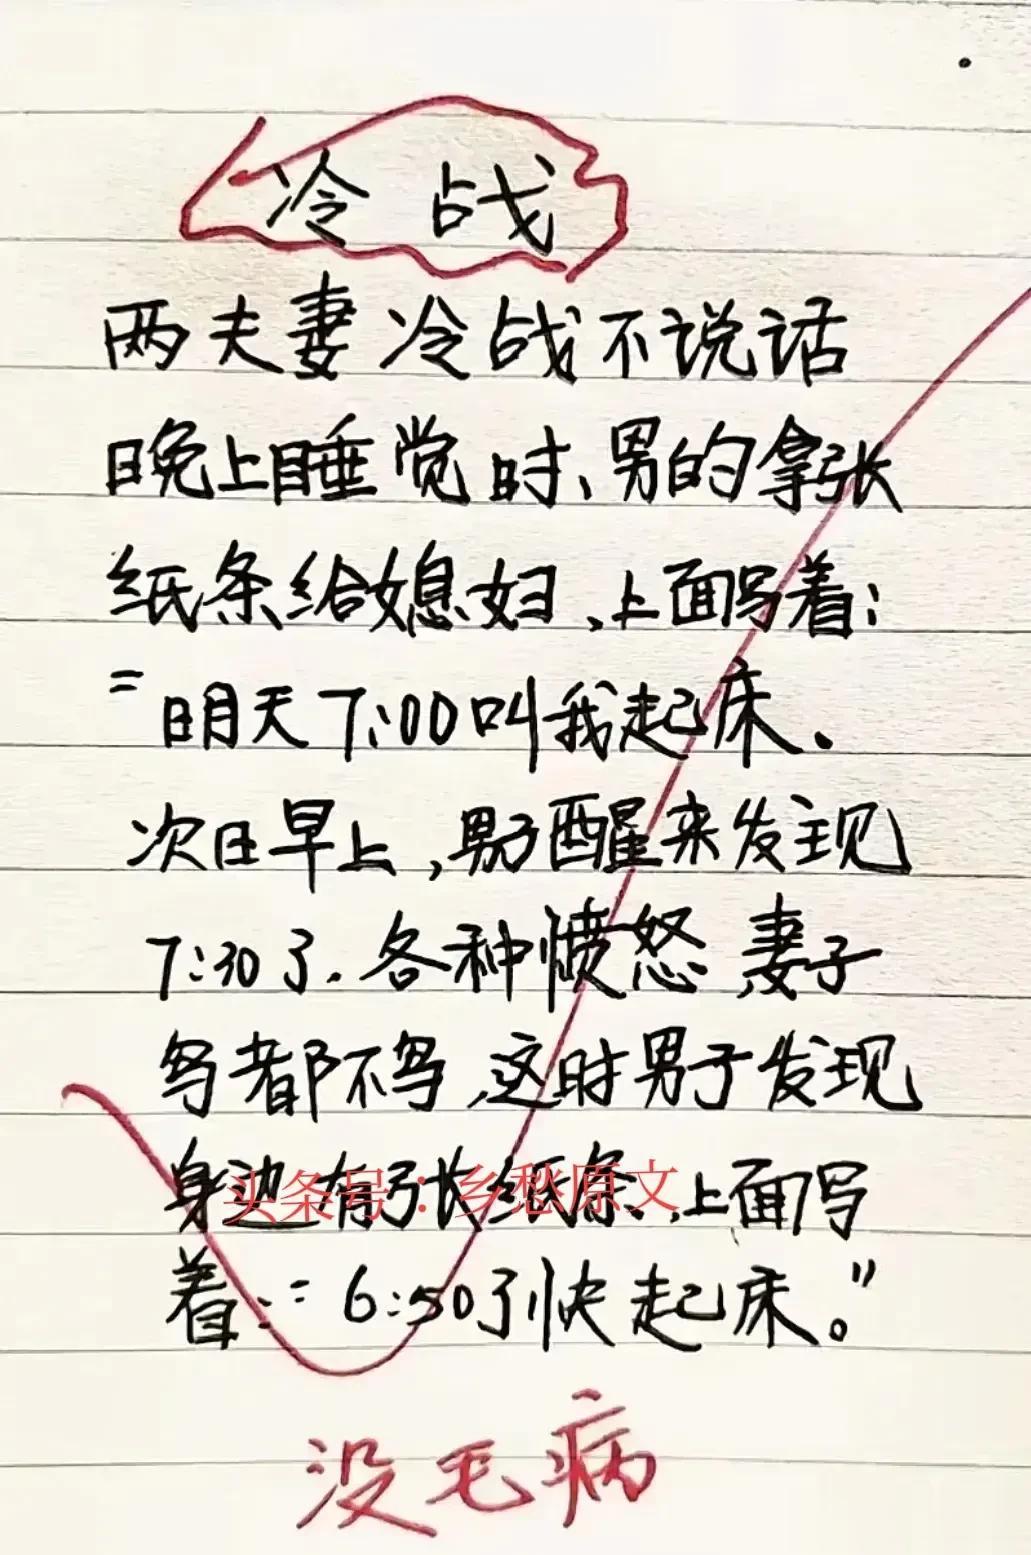 冷战
两夫妻冷战不说话
晚上睡觉时、男的拿张
纸条给媳妇、上面写着:
"明天7:00叫我起床.
次日早上,男子醒来发现
7:30了.各种愤怒,妻子
鸟都不鸟,这时男子发现
身边有张纸条.,上面写
着:"6:50了快起床。"
头条号:乡愁原文
没毛病